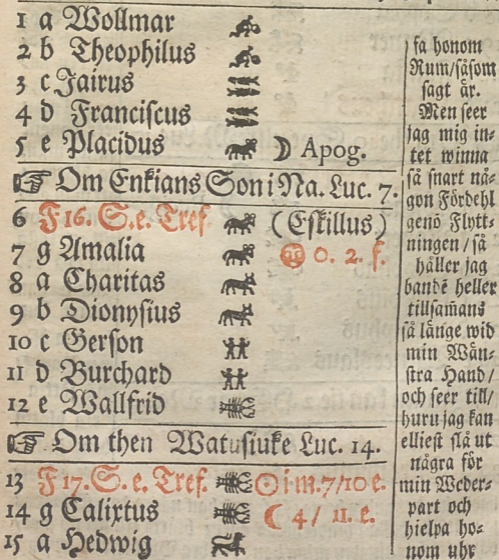 1 a Wollmar
2 b Theophilus
3 c Jairus
4 d Franciscus
5 e Placidus ☽ Apog.
☞ Om Enkians Son i Na. Luc. 7.
6 F 16. S. e. Tref. (Eskillus)
7 g Amalia 0. 2. f.
8 a Charitas
9 b Dionysius
10 c Gerson
11 d Burchard
12 e Wallfrid
☞ Om then Watusiuke Luc. 14.
13 F 17. S. e. Tref. ☉ i m. 7/10 e.
14 g Calixtus ☾ 4/ 11. e.
15 a Hedwig
fa honom
Rum/såsom
sagt är.
Men seer
jag mig in-
tet winna
så snart nå-
gon Fördehl
genō Flytt-
ningen/så
håller jag
bandē heller
tillsam̄ans
så länge wid
min Wän-
stra Hand/
och seer till/
huru jag kan
elliest slå ut
några för
min Weder-
part och
hielpa ho-
nom uhr